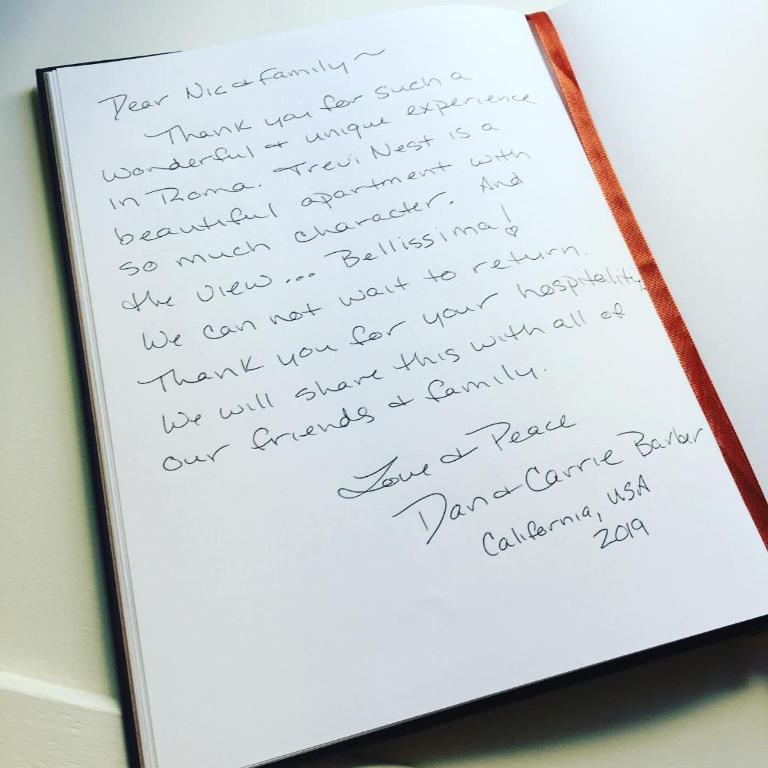 Dear Nic & Family~
Thank you for such a
wonderful & unique experience
in Roma. Trevi Nest is a
beautiful apartment with
so much character. And
the view... Bellissima! ♡
We can not wait to return.
Thank you for your hospitality,
We will share this with all of
our friends & family.
Love & Peace
Dan & Carrie Barber
California, USA
2019